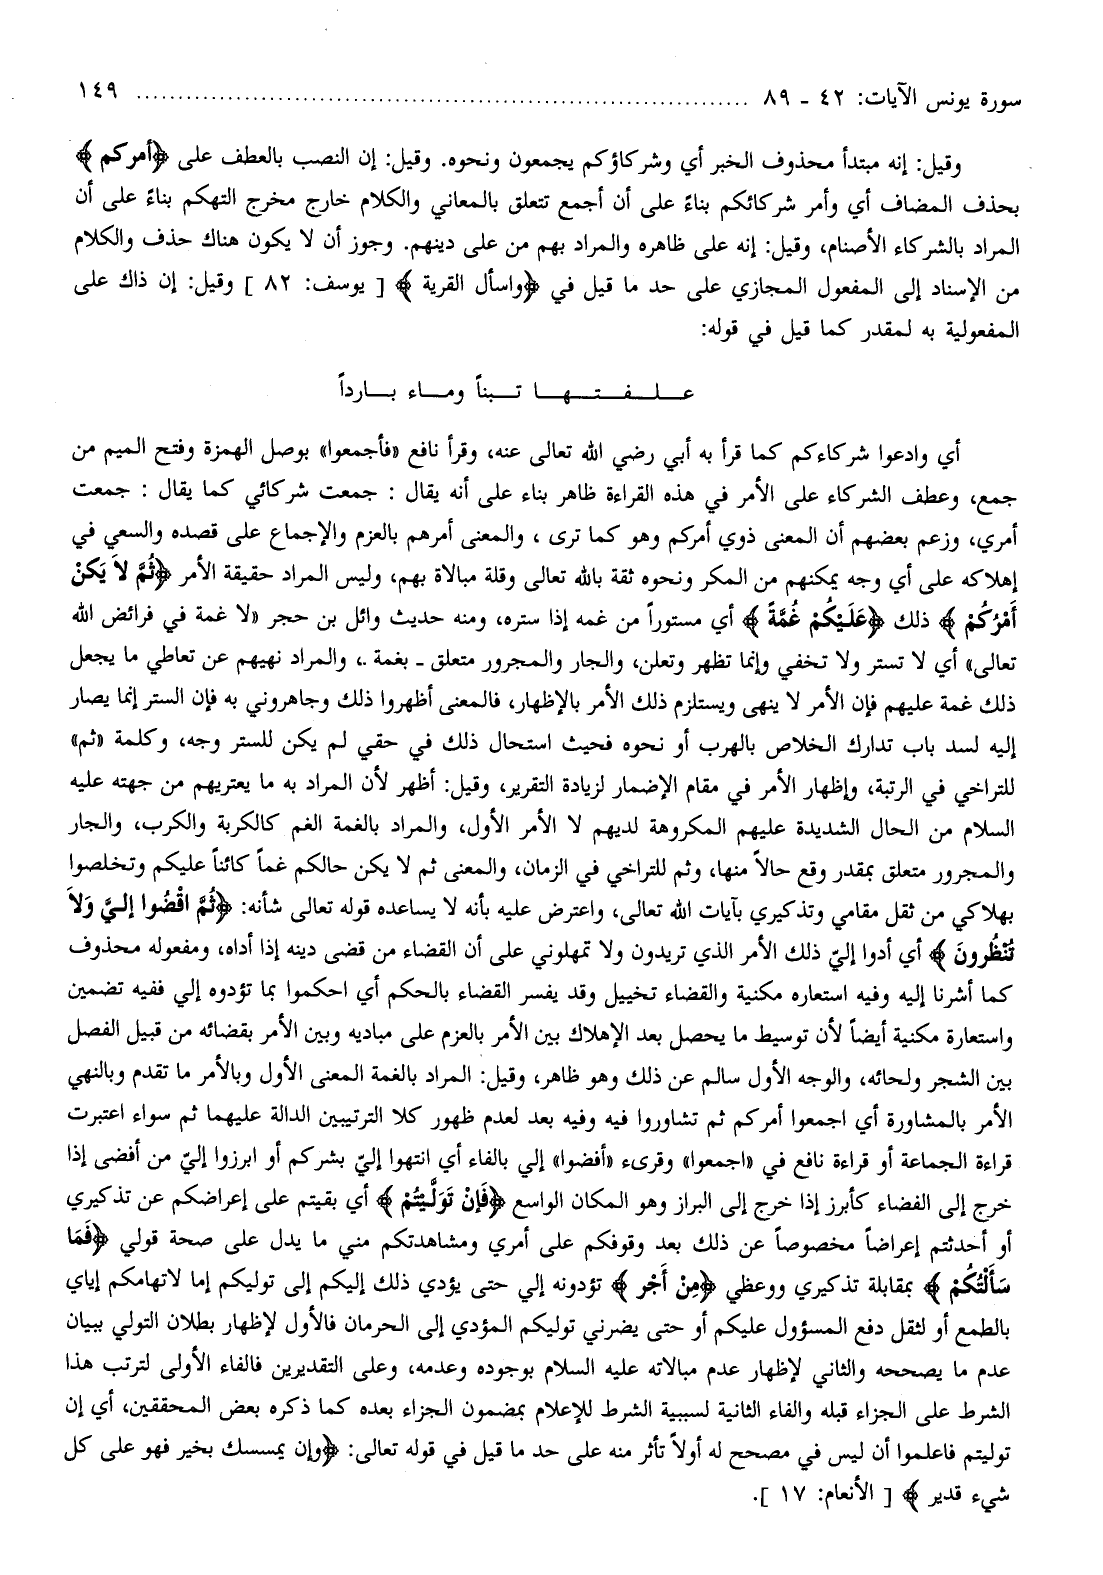 سورة يونس الآيات: ٤٢ ـ ٨٩ ........................................................................ ١٤٩
وقيل: إنه مبتدأ محذوف الخبر أي وشركاؤكم يجمعون ونحوه. وقيل: إن النصب بالعطف على ﴿أمركم﴾
بحذف المضاف أي وأمر شركائكم بناءً على أن أجمع تتعلق بالمعاني والكلام خارج مخرج التهكم بناءً على أن
المراد بالشركاء الأصنام، وقيل: إنه على ظاهره والمراد بهم من على دينهم. وجوز أن لا يكون هناك حذف والكلام
من الإسناد إلى المفعول المجازي على حد ما قيل في ﴿واسأل القرية﴾ [ يوسف: ٨٢ ] وقيل: إن ذاك على
المفعولية به لمقدر كما قيل في قوله:
علفتها تبناً وماء بارداً
أي وادعوا شركاءكم كما قرأ به أبي رضي الله تعالى عنه، وقرأ نافع «فأجمعوا» بوصل الهمزة وفتح الميم من
جمع، وعطف الشركاء على الأمر في هذه القراءة ظاهر بناء على أنه يقال : جمعت شركائي كما يقال : جمعت
أمري، وزعم بعضهم أن المعنى ذوي أمركم وهو كما ترى ، والمعنى أمرهم بالعزم والإجماع على قصده والسعي في
إهلاكه على أي وجه يمكنهم من المكر ونحوه ثقة بالله تعالى وقلة مبالاة بهم، وليس المراد حقيقة الأمر ﴿ثُمَّ لاَ يَكنْ
أَمْرُكُمْ﴾ ذلك ﴿عَلَيْكُمْ غُمَّةً﴾ أي مستوراً من غمه إذا ستره، ومنه حديث وائل بن حجر «لا غمة في فرائض الله
تعالى» أي لا تستر ولا تخفي وإنما تظهر وتعلن، والجار والمجرور متعلق ـ بغمة ـ، والمراد نهيهم عن تعاطي ما يجعل
ذلك غمة عليهم فإن الأمر لا ينهى ويستلزم ذلك الأمر بالإظهار، فالمعنى أظهروا ذلك وجاهروني به فإن الستر إنما يصار
إليه لسد باب تدارك الخلاص بالهرب أو نحوه فحيث استحال ذلك في حقي لم يكن للستر وجه، وكلمة «ثم»
للتراخي في الرتبة، وإظهار الأمر في مقام الإضمار لزيادة التقرير، وقيل: أظهر لأن المراد به ما يعتريهم من جهته عليه
السلام من الحال الشديدة عليهم المكروهة لديهم لا الأمر الأول، والمراد بالغمة الغم كالكربة والكرب، والجار
والمجرور متعلق بمقدر وقع حالاً منها، وثم للتراخي في الزمان، والمعنى ثم لا يكن حالكم غماً كائناً عليكم وتخلصوا
بهلاكي من ثقل مقامي وتذكيري بآيات الله تعالى، واعترض عليه بأنه لا يساعده قوله تعالى شأنه: ﴿ثُمَّ اقْضُوا إليَّ وَلاَ
تُنْظُرونَ﴾ أي أدوا إليّ ذلك الأمر الذي تريدون ولا تمهلوني على أن القضاء من قضى دينه إذا أداه، ومفعوله محذوف
كما أشرنا إليه وفيه استعاره مكنية والقضاء تخييل وقد يفسر القضاء بالحكم أي احكموا بما تؤدوه إلي ففيه تضمين
واستعارة مكنية أيضاً لأن توسيط ما يحصل بعد الإهلاك بين الأمر بالعزم على مباديه وبين الأمر بقضائه من قبيل الفصل
بين الشجر ولحائه، والوجه الأول سالم عن ذلك وهو ظاهر، وقيل: المراد بالغمة المعنى الأول وبالأمر ما تقدم وبالنهي
الأمر بالمشاورة أي اجمعوا أمركم ثم تشاوروا فيه وفيه بعد لعدم ظهور كلا الترتيبين الدالة عليهما ثم سواء اعتبرت
قراءة الجماعة أو قراءة نافع في «اجمعوا» وقرىء «أفضوا» إلي بالفاء أي انتهوا إليّ بشركم أو ابرزوا إليّ من أفضى إذا
خرج إلى الفضاء كأبرز إذا خرج إلى البراز وهو المكان الواسع ﴿فَإنْ تَوَلَّيتُمْ﴾ أي بقيتم على إعراضكم عن تذكيري
أو أحدثتم إعراضاً مخصوصاً عن ذلك بعد وقوفكم على أمري ومشاهدتكم مني ما يدل على صحة قولي ﴿فَمَا
سَأَلْتُكُمْ﴾ بمقابلة تذكيري ووعظي ﴿مِنْ أَجْر﴾ تؤدونه إلي حتى يؤدي ذلك إليكم إلى توليكم إما لاتهامكم إياي
بالطمع أو لثقل دفع المسؤول عليكم أو حتى يضرني توليكم المؤدي إلى الحرمان فالأول لإظهار بطلان التولي ببيان
عدم ما يصححه والثاني لإظهار عدم مبالاته عليه السلام بوجوده وعدمه، وعلى التقديرين فالفاء الأولى لترتب هذا
الشرط على الجزاء قبله والفاء الثانية لسببية الشرط للإعلام بمضمون الجزاء بعده كما ذكره بعض المحققين، أي إن
توليتم فاعلموا أن ليس في مصحح له أولاً تأثر منه على حد ما قيل في قوله تعالى: ﴿وإن يمسسك بخير فهو على كل
شيء قدير﴾ [ الأنعام: ١٧ ].